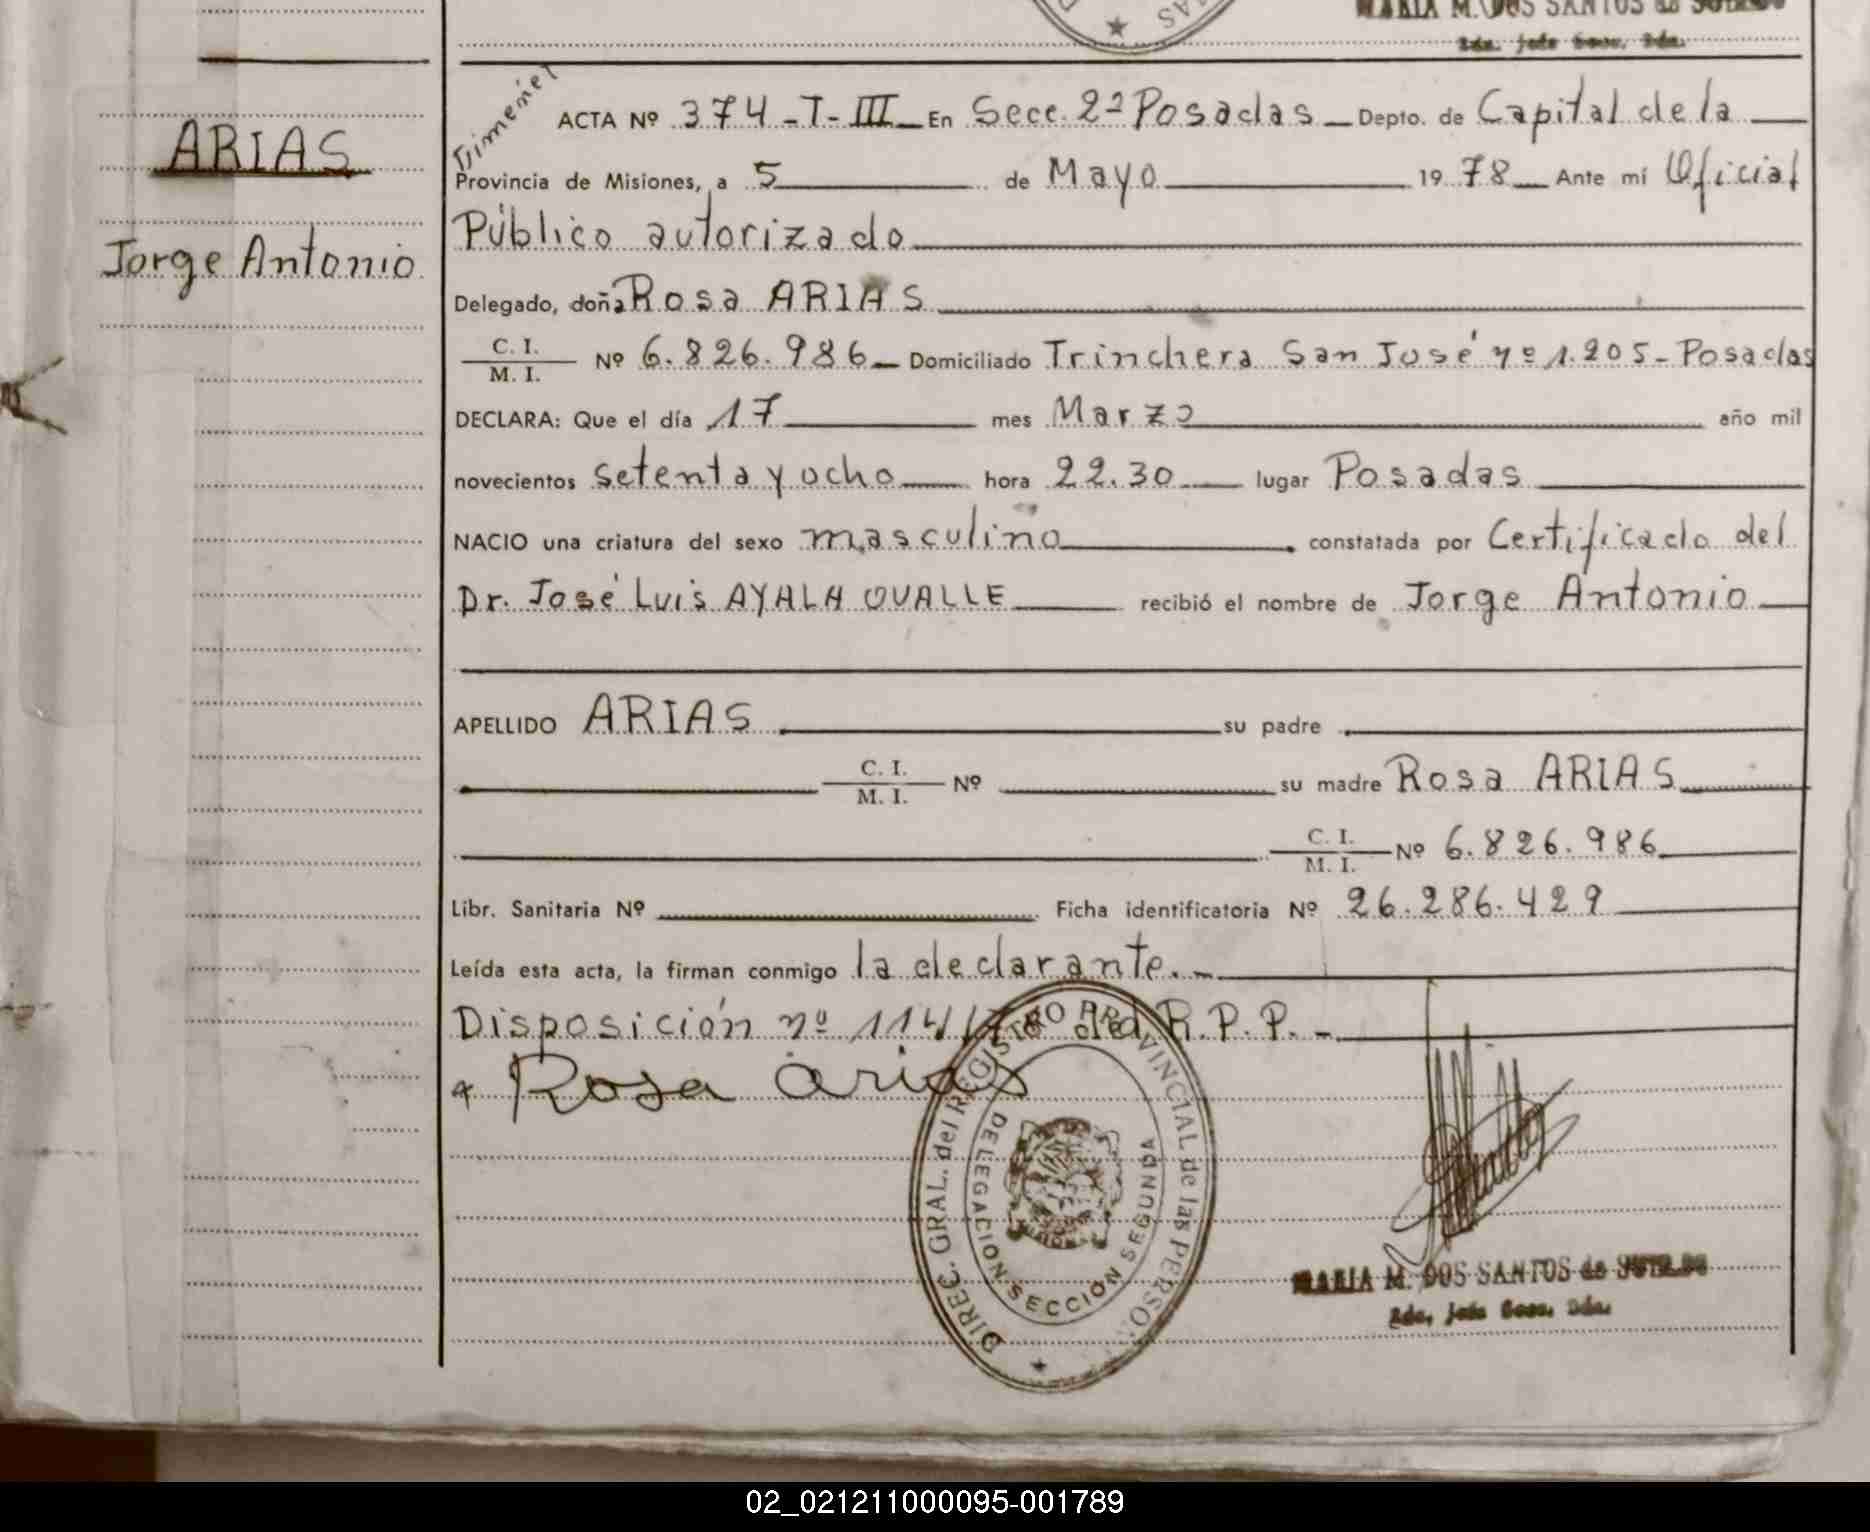 MARIA M. DOS SANTOS de
ARIAS
Jorge Antonio
ACTA Nº 374-T-III En Secc. 2ª Posadas Depto. de Capital de la
Provincia de Misiones, a 5 de Mayo 1978 Ante mí Oficial
Público autorizado
Delegado, doña Rosa ARIAS
C. I.
M. I. Nº 6.826.986 Domiciliado Trinchera San José nº 1.205-Posadas
DECLARA: Que el día 17 mes Marzo año mil
novecientos setenta y ocho hora 22.30 lugar Posadas
NACIO una criatura del sexo masculino constatada por Certificado del
Dr. José Luis AYALA OVALLE recibió el nombre de Jorge Antonio
APELLIDO ARIAS su padre
C. I.
M. I. Nº su madre Rosa ARIAS
C. I.
M. I. Nº 6.826.986
Libr. Sanitaria Nº Ficha identificatoria Nº 26.286.429
Leída esta acta, la firman conmigo la declarante.-
Disposición nº 114/78 del R.P.P.-
Rosa Arias
DIREC. GRAL. del REGISTRO PROVINCIAL de las PERSO.
DELEGACION SECCION SEGUNDA
MARIA M. DOS SANTOS de
02_021211000095-001789